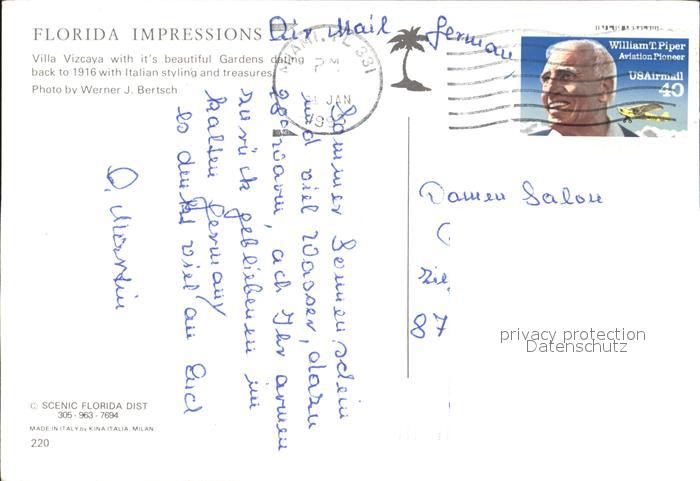 FLORIDA IMPRESSIONS
Villa Vizcaya with it's beautiful Gardens dating
back to 1916 with Italian styling and treasures.
Photo by Werner J. Bertsch
Air Mail Germany
MIAMI, FL 331
PM
JAN
William T. Piper
Aviation Pioneer
USAirmail
40
Sommer Sonnenschein
und viel Wasser, dazu
28° warm, ach Ihr armen
zurück gebliebenen im
kalten Germany
Es denkt viel an Euch
O. Martin
Damen Salon
87
privacy protection
Datenschutz
© SCENIC FLORIDA DIST
305-963-7694
MADE IN ITALY by KINA ITALIA, MILAN
220